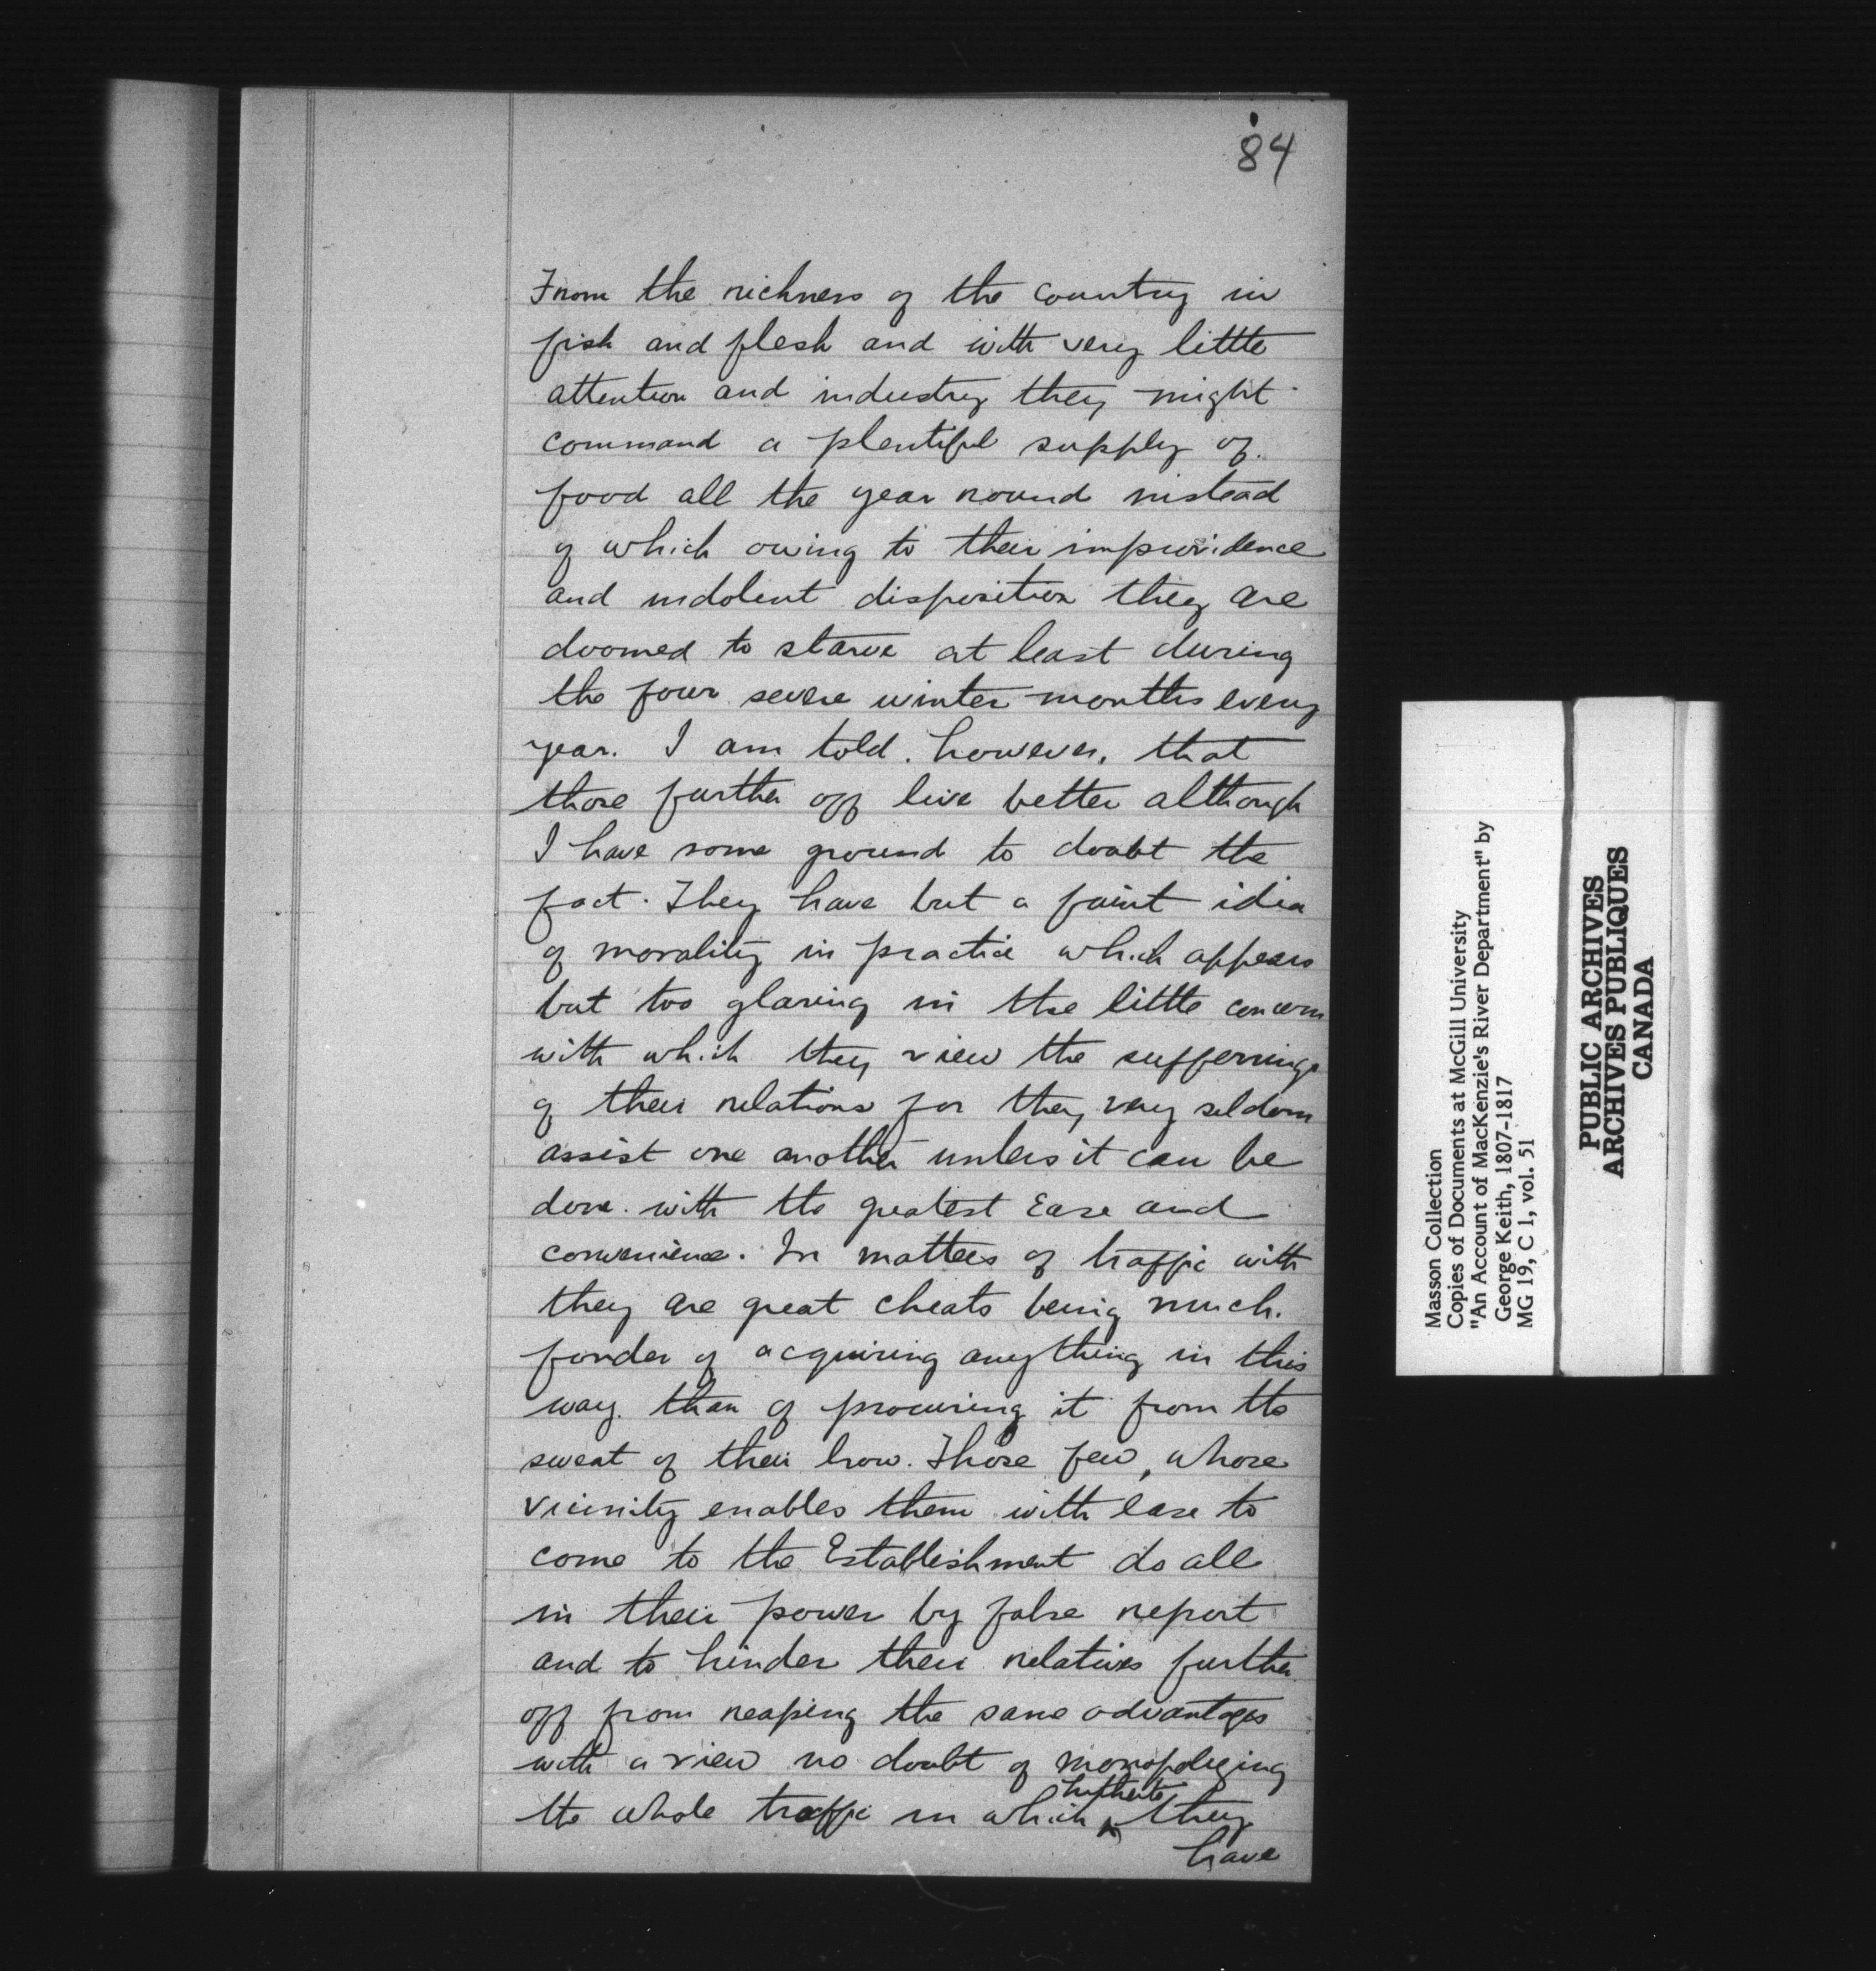 84
From the richness of the country in
fish and flesh and with very little
attention and industry they might
command a plentiful supply of
food all the year round instead
of which owing to their improvidence
and indolent disposition they are
doomed to starve at least during
the four severe winter months every
year. I am told, however, that
those further off live better although
I have some ground to doubt the
fact. They have but a faint idea
of morality in practice which appears
but too glaring in the little concern
with which they view the sufferings
of their relations for they very seldom
assist one another unless it can be
done with the greatest Ease and
convenience. In matters of traffic with
they are great cheats being much
fonder of acquiring anything in this
way than of procuring it from the
sweat of their brow. Those few, whose
vicinity enables them with ease to
come to the Establishment do all
in their power by false report
and to hinder their relatives further
off from reaping the same advantages
with a view no doubt of monopolizing
the whole traffic in which hitherto they
have
Masson Collection
Copies of Documents at McGill University
"An Account of MacKenzie's River Department" by
George Keith, 1807-1817
MG 19, C 1, vol. 51
PUBLIC ARCHIVES
ARCHIVES PUBLIQUES
CANADA